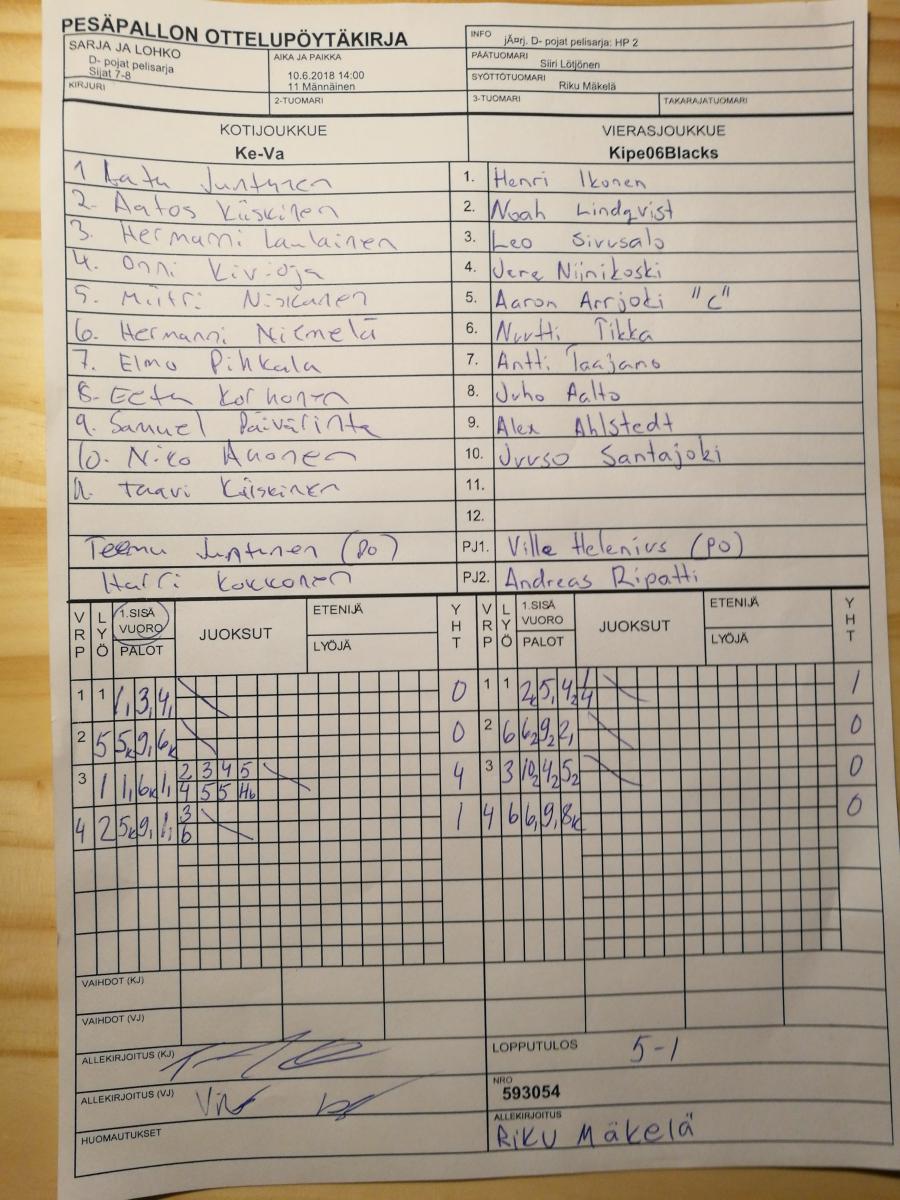 PESÄPALLON OTTELUPÖYTÄKIRJA
SARJA JA LOHKO
D- pojat pelisarja
Sijat 7-8
KIRJURI
AIKA JA PAIKKA
10.6.2018 14:00
11 Männäinen
2-TUOMARI
INFO jÃ¤rj. D- pojat pelisarja: HP 2
PÄÄTUOMARI
Siiri Lötjönen
SYÖTTÖTUOMARI
Riku Mäkelä
3-TUOMARI
TAKARAJATUOMARI
KOTIJOUKKUE
Ke-Va
VIERASJOUKKUE
Kipe06Blacks
1 Aatu Juntunen
2. Aatos Kiiskinen
3. Hermanni Laulainen
4. Onni Kivioja
5. Miitri Niskanen
6. Hermanni Niemelä
7. Elmo Pihkala
8. Eetu Korhonen
9. Samuel Päivärinta
10. Niko Ahonen
11. Taavi Kiiskinen
Teemu Juntunen (PO)
Harri Kokkonen
1. Henri Ikonen
2. Noah Lindqvist
3. Leo Sivusalo
4. Jere Niinikoski
5. Aaron Arrjoki "C"
6. Nuutti Tikka
7. Antti Taajamo
8. Juho Aalto
9. Alex Ahlstedt
10. Juuso Santajoki
11.
12.
PJ1. Ville Helenius (PO)
PJ2. Andreas Ripatti
VRP LYÖ 1.SISÄ VUORO PALOT JUOKSUT ETENIJÄ LYÖJÄ YHT
1 1 1, 3, 4, 0
2 5 5k 9, 6k 0
3 1 1, 6k 1, 2 3 4 5 4
4 5 5 H6
4 2 5k 9, 1, 3 1
6
VRP LYÖ 1.SISÄ VUORO PALOT JUOKSUT ETENIJÄ LYÖJÄ YHT
1 1 2k 5, 42 1 1
4
2 6 62 92 2, 0
3 3 102 42 52 0
4 6 6, 9, 8k 0
VAIHDOT (KJ)
VAIHDOT (VJ)
ALLEKIRJOITUS (KJ)
ALLEKIRJOITUS (VJ)
HUOMAUTUKSET
LOPPUTULOS 5-1
NRO
593054
ALLEKIRJOITUS
Riku Mäkelä